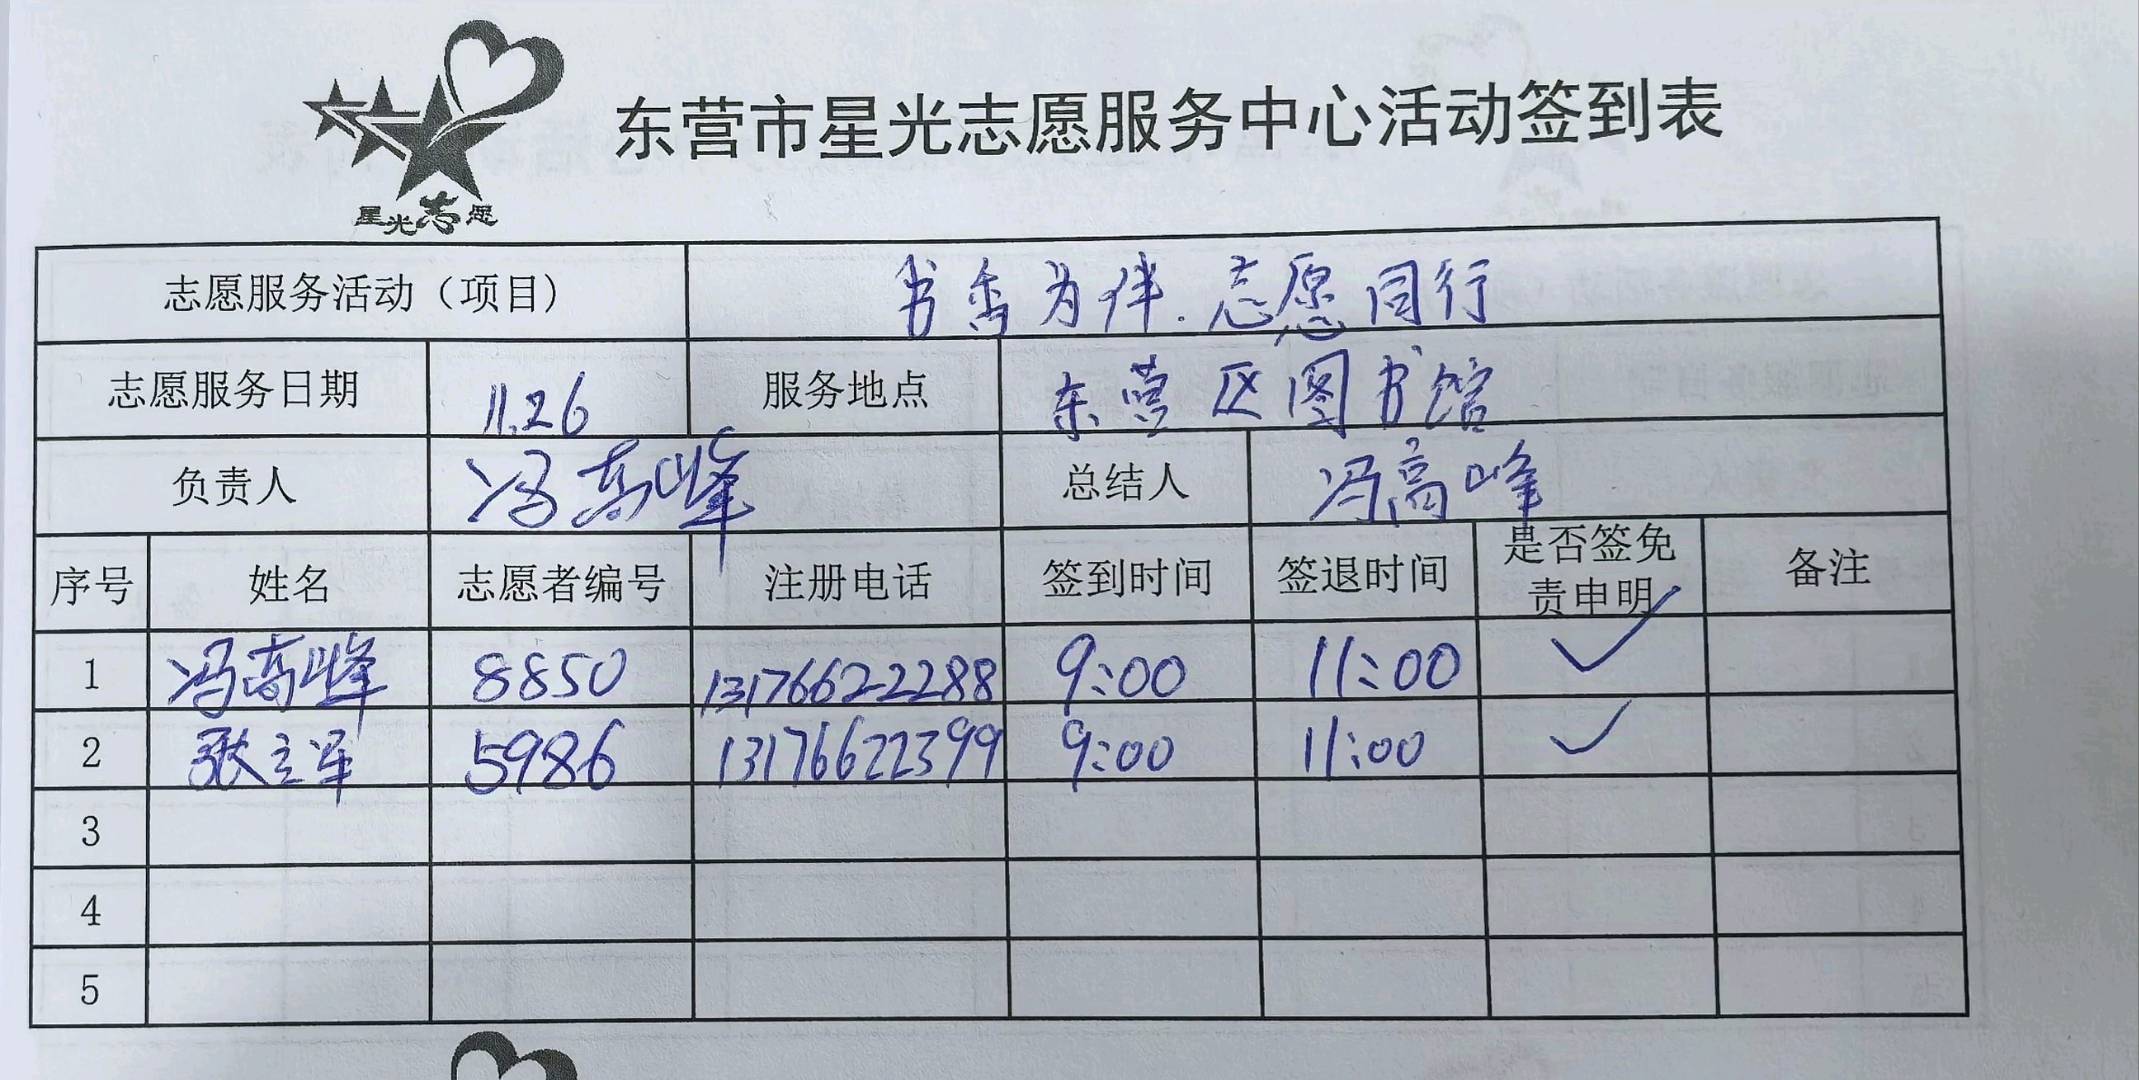 星光志愿
东营市星光志愿服务中心活动签到表
志愿服务活动（项目） 书香为伴.志愿同行
志愿服务日期 11.26 服务地点 东营区图书馆
负责人 冯高峰 总结人 冯高峰
序号 姓名 志愿者编号 注册电话 签到时间 签退时间 是否签免责申明 备注
1 冯高峰 8850 13176622288 9:00 11:00 ✓
2 张立军 5986 13176622399 9:00 11:00 ✓
3
4
5